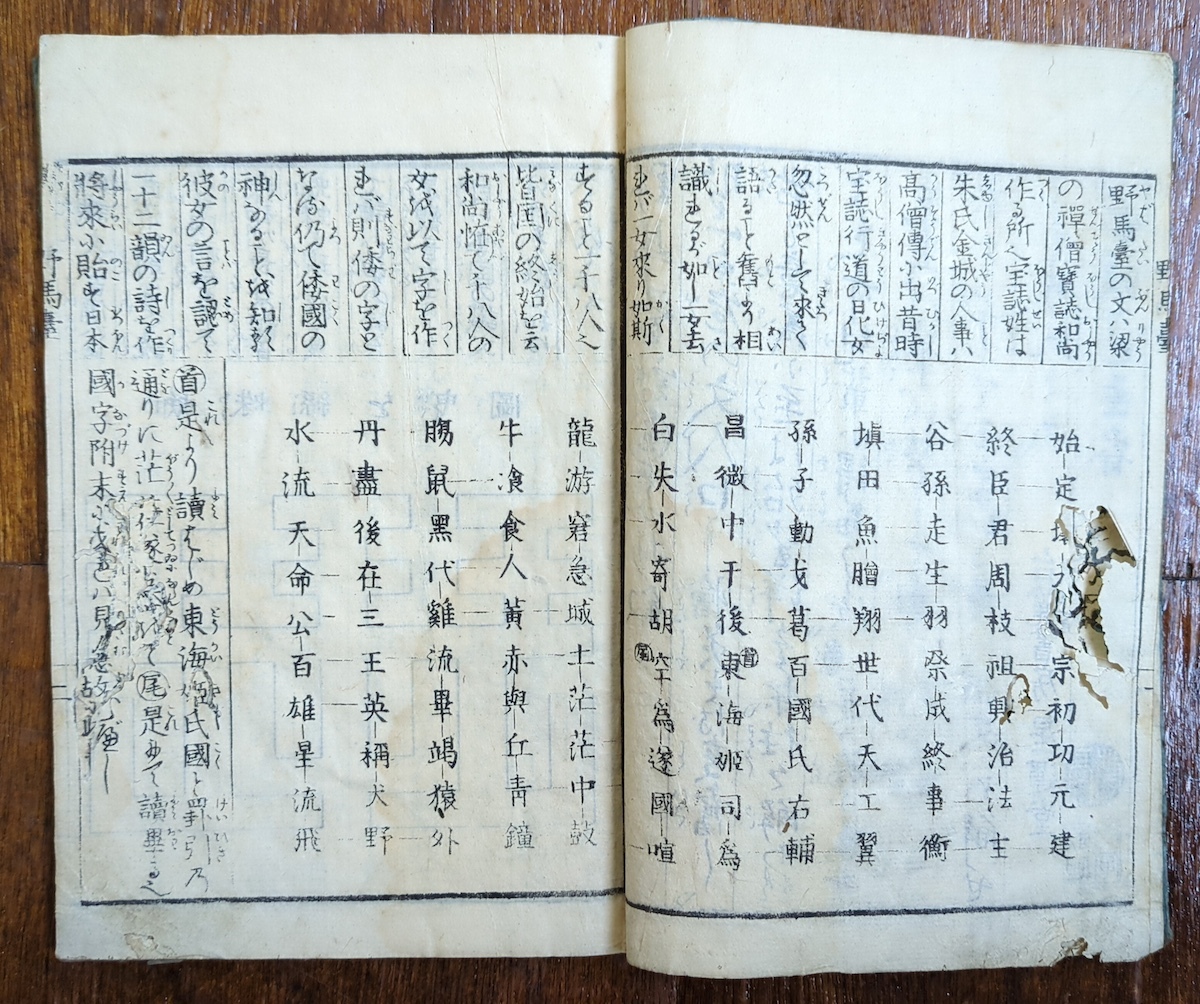 野馬臺の文ハ梁
の禪僧寶誌和尚
作る所之宝誌姓は
朱氏金城の人事ハ
髙僧傳小出昔時
宝誌行道の日化女
忽然として來て
語ること舊き相
識れるが如し一女去
れバ一女來り如斯
すること一千八人之
皆国の終始を云
和尚怪て千八人の
女を以て字を作
れバ則倭の字と
なる仍て倭國の
神なることを知る
彼女の言を認て
一十二韻の詩を作
將來小貽す日本
始定宗初功元建
終臣君周枝祖興治法主
谷孫走生羽祭成終事衡
塡田魚膾翔世代天工翼
孫子動戈葛百國氏右輔
昌微中干後首東海姬司為
白失水寄胡尾為遂國喧
龍游窘急城土茫茫中鼓
牛飡食人黃赤與丘青鐘
膓鼠黑代雞流畢竭猿外
丹盡後在三王英稱犬野
水流天命公百雄星流飛
首是より讀はじめ東海姫氏國と罫引乃
通りに茫尾是にて讀畢る之
國字附末に見
野馬臺